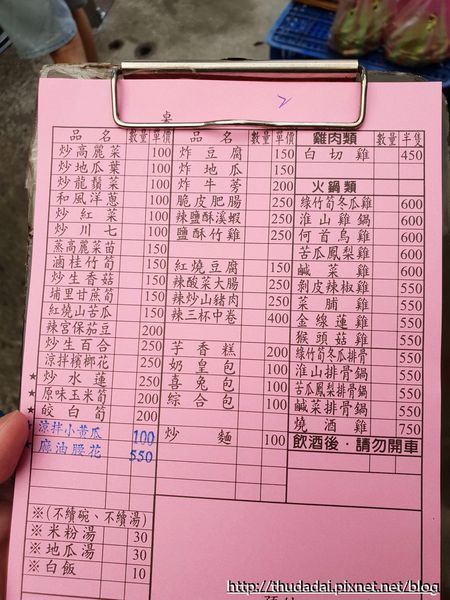 2
桌
品名 數量 單價 品名 數量 單價 雞肉類 數量 半隻
炒高麗菜 100 炸豆腐 150 白切雞 450
炒地瓜葉 100 炸地瓜 150
炒龍鬚菜 100 炸牛蒡 200 火鍋類
和風洋蔥 100 脆皮肥腸 250 綠竹筍冬瓜雞 600
炒紅菜 100 辣鹽酥溪蝦 250 淮山雞鍋 600
炒川七 100 鹽酥竹雞 250 何首烏雞 600
蒸高麗菜苗 150 苦瓜鳳梨雞 600
滷桂竹筍 150 紅燒豆腐 150 鹹菜雞 600
炒生香菇 150 辣酸菜大腸 250 剝皮辣椒雞 550
埔里甘蔗筍 150 辣炒山豬肉 250 菜脯雞 550
紅燒山苦瓜 150 辣三杯中卷 400 金線蓮雞 550
辣宮保茄豆 200 猴頭菇雞 550
炒生百合 250 芋香糕 200 綠竹筍冬瓜排骨 550
涼拌檳榔花 250 奶皇包 100 淮山排骨鍋 550
★炒水蓮 250 喜兔包 100 苦瓜鳳梨排骨鍋 550
★原味玉米筍 200 綜合包 100 鹹菜排骨鍋 550
★皎白筍 200 燒酒雞 750
★涼拌小黃瓜 100 炒麵 100 飲酒後·請勿開車
★麻油腰花 550
※(不續碗、不續湯)
※米粉湯 30
※地瓜湯 30
※白飯 10
http://thudadai.pixnet.net/blog